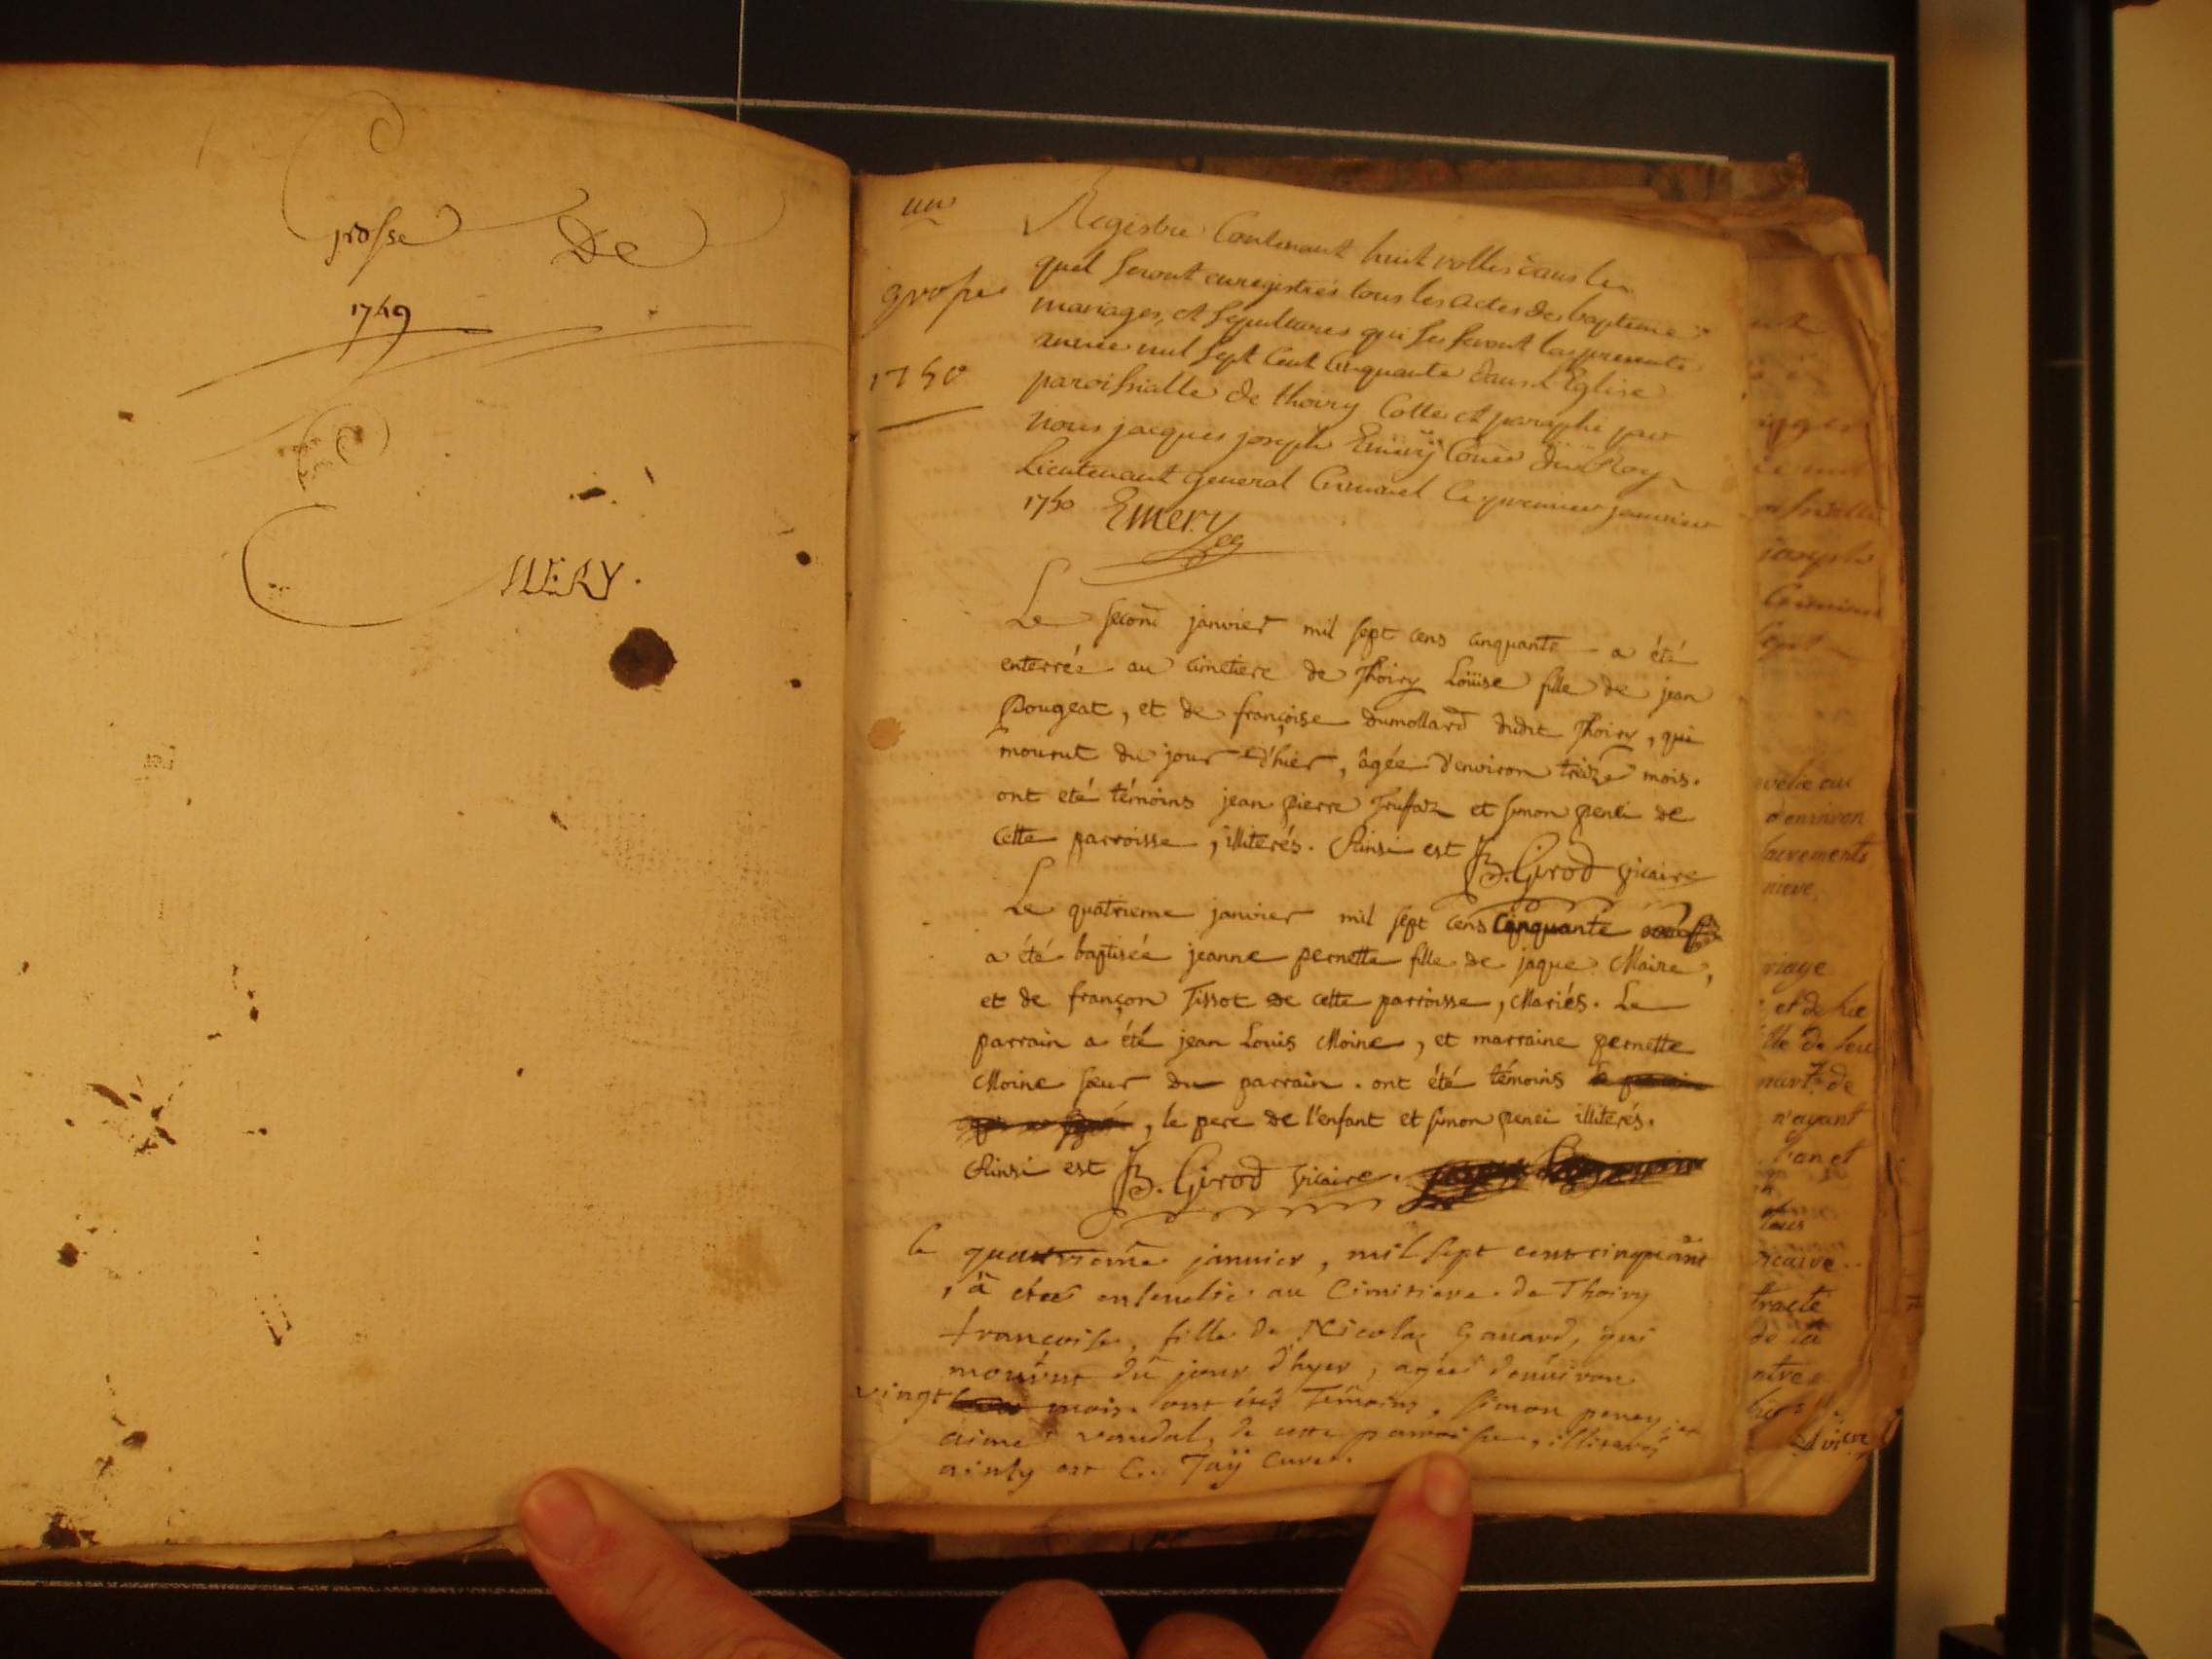 Grosse De
1749
EMERY.
un
grosse
1750
Registre Contenant huit rolles dans le
quel seront enregistrés tous les actes de baptême
mariages, et sepultures qui se feront la presente
année mil sept cent cinquante dans l'Eglise
paroissialle de thoiry Cotté et paraphé par
Nous jacques joseph Emery Coner du Roy
Lieutenant general Criminel Ce premier janvier
1750 Emery
Le second janvier mil sept cens cinquante a été
enterrée au cimetiere de Thoiry Loüise fille de jean
Pougeat, et de françoise dumollard dudit Thoiry, qui
mourut du jour d'hier, âgée d'environ treize mois.
ont eté témoins jean pierre Truffaz et simon penei de
cette parroisse, illiterés. Ainsi est B. Girod vicaire
Le quatrieme janvier mil sept cens cinquante
a été baptisée jeanne pernette fille de jaque Maire,
et de françon Tissot de cette parroisse, Mariés. Le
parrain a été jean Louis Moine, et marraine pernette
Moine sœur du parrain. ont été témoins
, le pere de l'enfant et simon penei illiterés.
Ainsi est B. Girod vicaire.
le quatrieme janvier, mil sept cent cinquante
, à etee ensevelie au Cimitiere de Thoiry
francoise, fille de Nicolas Gauard, qui
mourut du jour d'hyer, agée d'enuiron
vingt mois. ont étés Témoins, simon peney, et
aimé vaudal, de cette parroisse, illiterés
ainsy est C. Taÿ Curé.